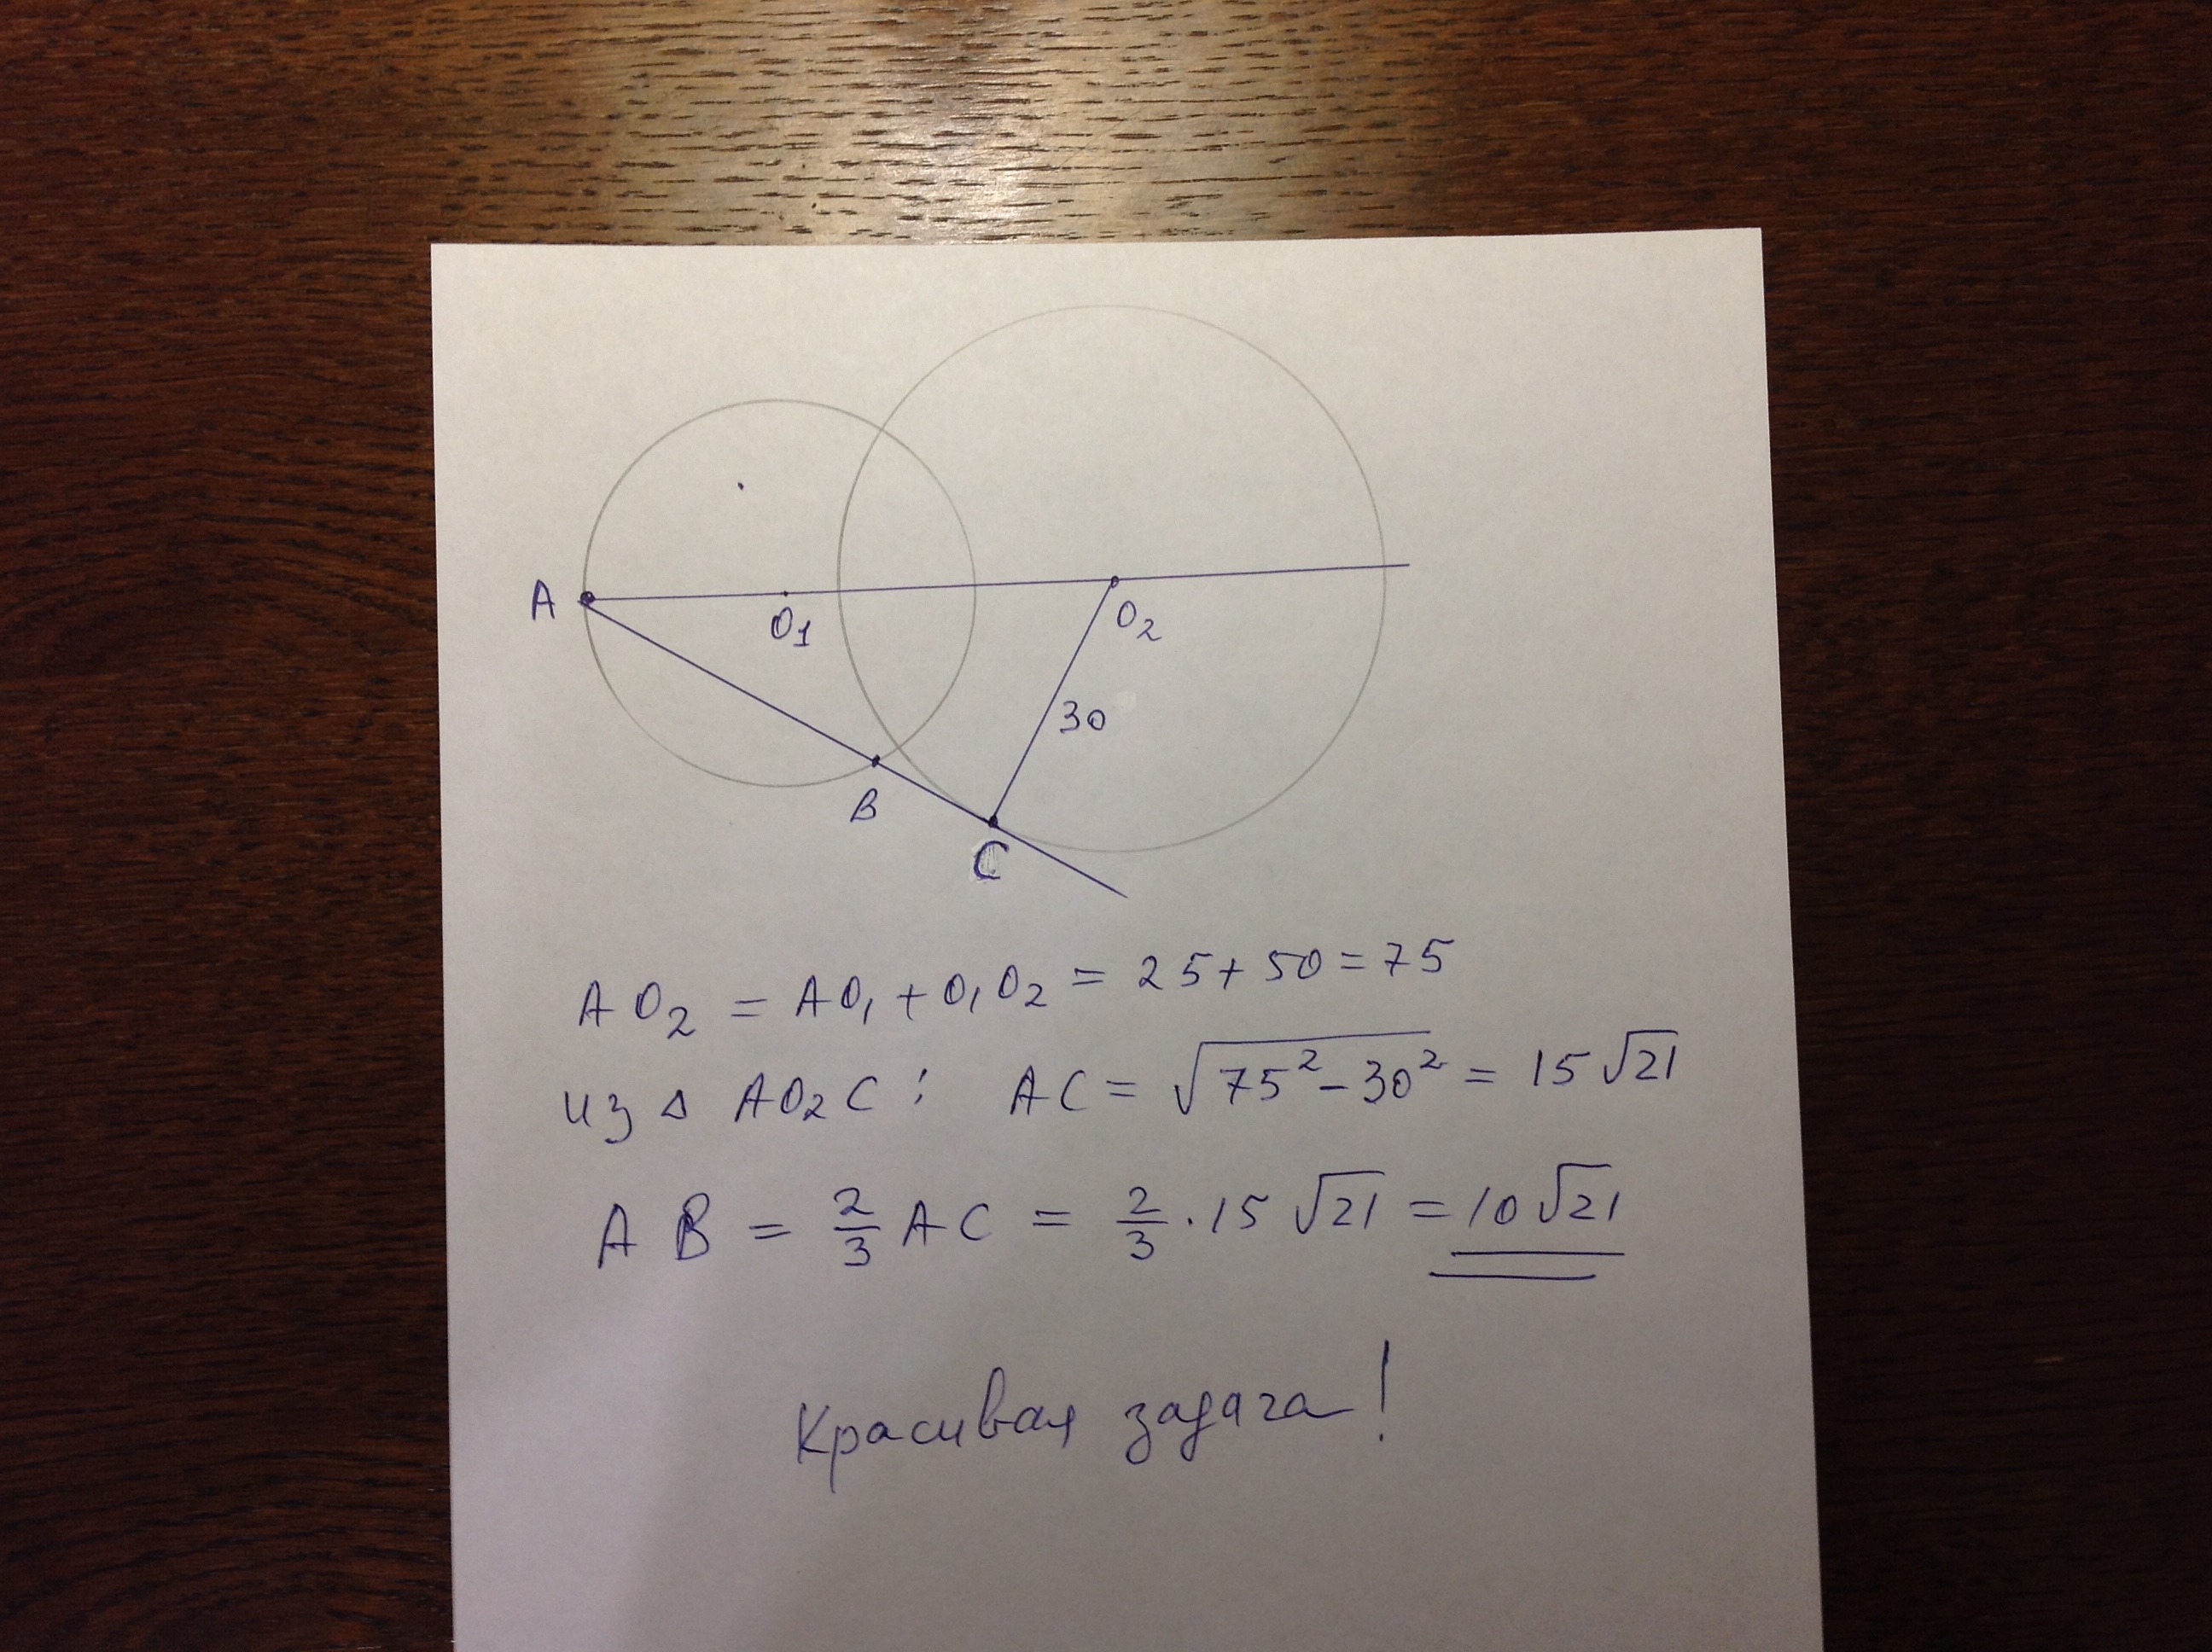 A
O₁
O₂
30
B
C
AO₂ = AO₁ + O₁O₂ = 25 + 50 = 75
из △ AO₂C : AC = √(75² − 30²) = 15√21
AB = 2/3 AC = 2/3 · 15√21 = 10√21
Красивая задача!